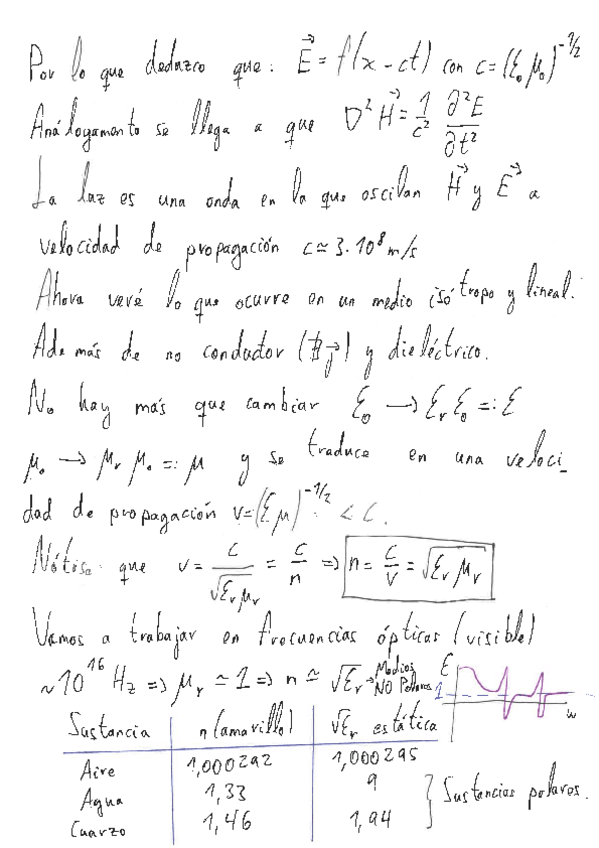 Por lo que deduzco que: E⃗ = f(x - ct) con c = (ε₀ μ₀)^-1/2
Análogamente se llega a que ∇² H⃗ = 1/c² ∂²E/∂t²
La luz es una onda en la que oscilan H⃗ y E⃗ a
velocidad de propagación c ≃ 3·10⁸ m/s
Ahora veré lo que ocurre en un medio isótropo y lineal.
Además de no conductor (∄ J⃗) y dieléctrico.
No hay más que cambiar ε₀ → εᵣ ε₀ =: ε
μ₀ → μᵣ μ₀ =: μ y se traduce en una veloci_
dad de propagación v = (ε μ)^-1/2 < c.
Nótese que v = c/√(εᵣ μᵣ) = c/n => n = c/v = √(εᵣ μᵣ)
Vamos a trabajar en frecuencias ópticas (visible)
~10¹⁶ Hz => μᵣ ≃ 1 => n ≃ √εᵣ → Medios NO Polares
E
1
w
Sustancia n (amarillo) √εᵣ estática
Aire 1,000292 1,000295
Agua 1,33 9
Cuarzo 1,46 1,94
} Sustancias polares.